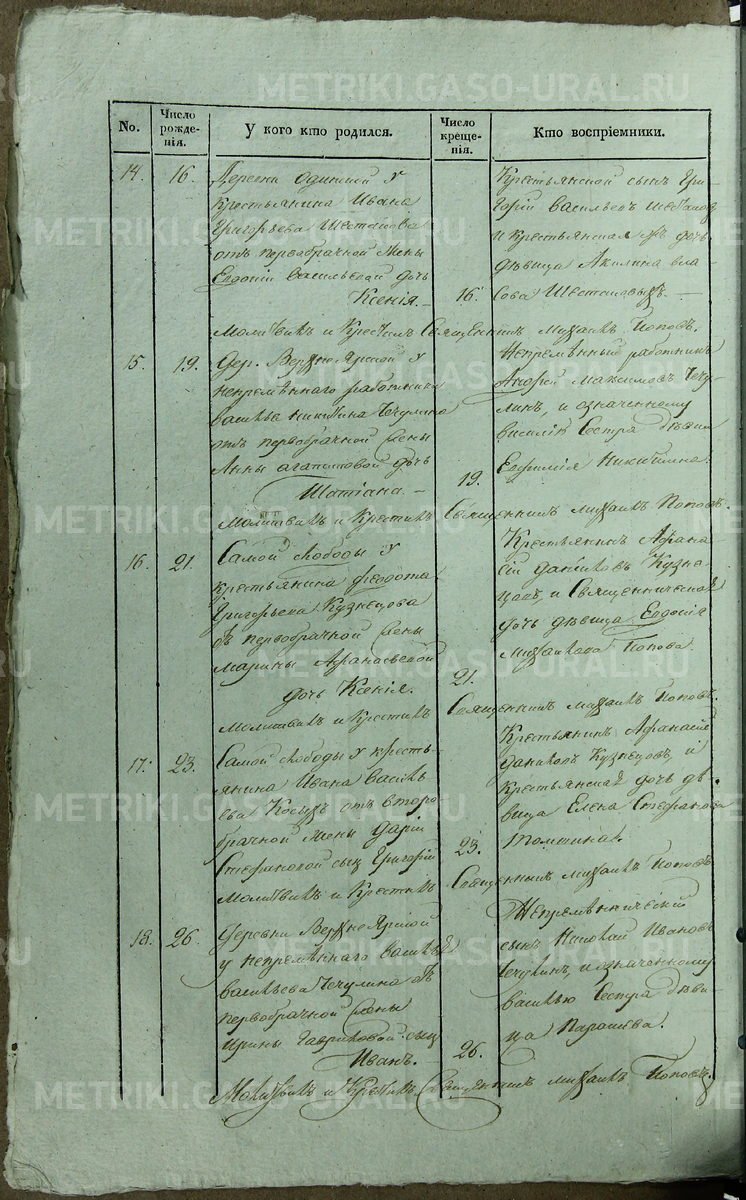 METRIKI.GASO-URAL.RU
No.
Число рожденія.
У кого кто родился.
Число крещенія.
Кто воспріемники.
14.
16.
Деревни Одиниой у
крестьянина Ивана
Григорьева Шестакова
отъ первобрачной жены
Евдокіи Васильевой дочь
Ксенія.
16.
Крестьянской сынъ Гри-
горій Васильевъ
и крестьянская дочь
дѣвица Акилина Вла-
сова Шестаковыхъ.
Молитвилъ и Крестилъ Священникъ Михаилъ Поповъ.
15.
19.
Дер. Верхнеярской у
непремѣннаго работника
Василья Никитина Чечулина
отъ первобрачной жены
Анны Агапитовой дочь
Татіана.
19.
Непремѣнный работникъ
Андрей Максимовъ Чечу-
линъ, и означенному
Василію Сестра дѣвица
Евфимія Никитина.
Молитвилъ и Крестилъ Священникъ Михаилъ Поповъ.
16.
21.
Самой слободы у
крестьянина Федота
Григорьева Кузнецова
отъ первобрачной жены
Марины Афанасьевой
дочь Ксенія.
21.
Крестьянинъ Афана-
сій Даниловъ Кузне-
цовъ, и Священническая
дочь дѣвица Евдокія
Михайлова Попова.
Молитвилъ и Крестилъ Священникъ Михаилъ Поповъ.
17.
23.
Самой слободы у кресть-
янина Ивана Василь-
ева Косыхъ отъ второ-
брачной жены Дарьи
Стефановой сынъ Григорій
23.
Крестьянинъ Афанасій
Даниловъ Кузнецовъ, и
крестьянская дочь дѣ-
вица Елена Стефанова
Томшина.
Молитвилъ и Крестилъ Священникъ Михаилъ Поповъ
18.
26.
Деревни Верхнеярской
у непремѣннаго Василья
Васильева Чечулина отъ
первобрачной жены
Ирины Гавриловой сынъ
Иванъ.
26.
Непремѣннический
сынъ Николай Ивановъ
Чечулинъ, и означенному
Василью Сестра дѣви-
ца
Молитвилъ и Крестилъ Священникъ Михаилъ Поповъ.